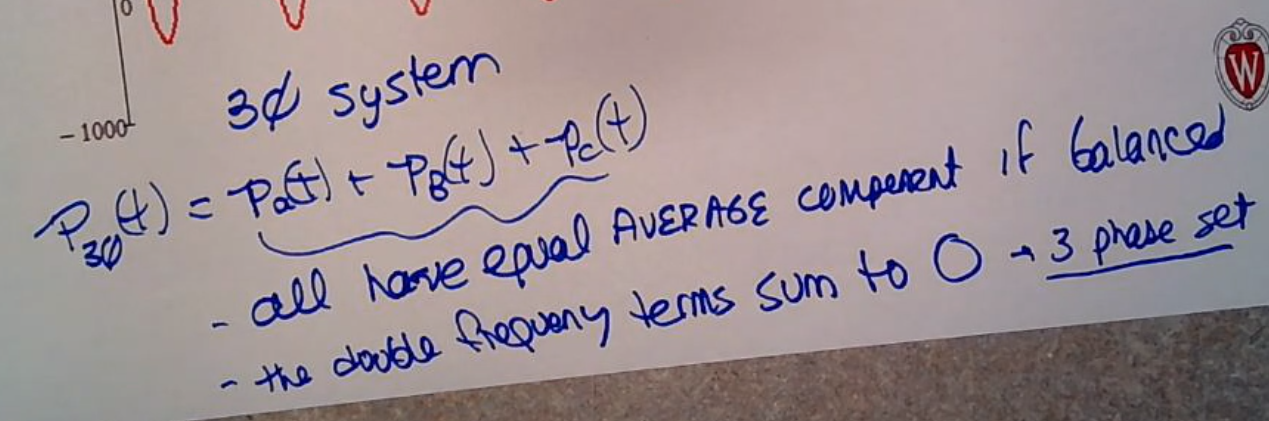 0
-1000
3Ø system
P3Ø(t) = Pa(t) + PB(t) + Pc(t)
- all have equal AVERAGE component if balanced
- the double frequency terms sum to 0 → 3 phase set
W